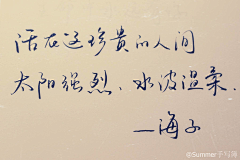 活在这珍贵的人间
太阳强烈.水波温柔.
—海子
@Summer手写集